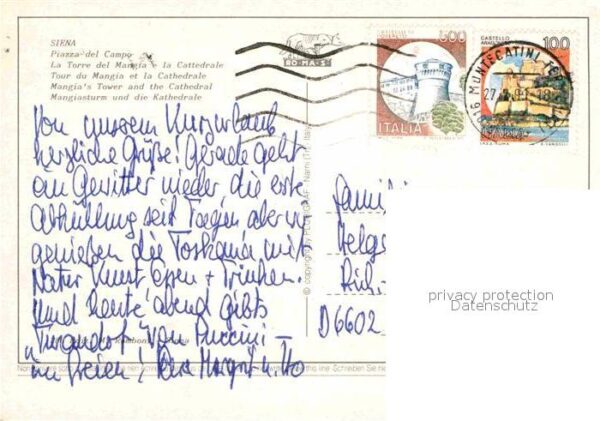 SIENA
Piazza del Campo
La Torre del Mangia e la Cattedrale
Tour du Mangia et la Cathedrale
Mangia's Tower and the Cathedral
Mangiasturm und die Kathedrale
ROMA
500
ITALIA
100
MONTECATINI
27
Von unserem Kurzurlaub
herzliche Grüße! Gerade geht
ein Gewitter nieder die erste
Abkühlung seit Tagen aber wir
genießen die Toskana mit
Natur Kunst Essen + Trinken.
Und heute abend gibts
Turandot von Puccini –
im Freien! Eure Margrit u. Otto
© copyright by PLURIGRAF - Narni (TR)
Famil
Helge
D6602
privacy protection
Datenschutz